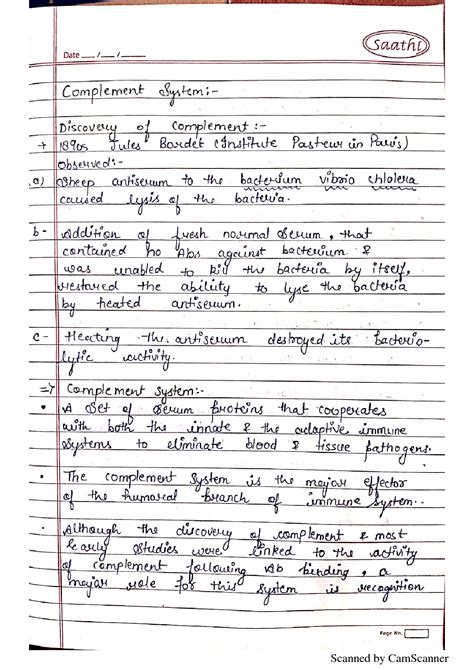 Saathi
Date __/__/__
Complement System:-
Discovery of Complement :-
→ 1890s Jules Bordet (Institute Pasteur in Paris)
Observed:-
a) Sheep antiserum to the bacterium vibrio chlolera
caused lysis of the bacteria.
b - Addition of fresh normal serum, that
contained no Abs against bacterium &
was unabled to kill the bacteria by itself,
restored the ability to lyse the bacteria
by heated antiserum.
c - Heating the antiserum destroyed its bacterio-
lytic activity.
=> Complement System:-
• A Set of Serum proteins that cooperates
with both the innate & the adaptive immune
systems to eliminate blood & tissue pathogens.
• The complement System is the major effector
of the humoral branch of immune System..
• Although the discovery of complement & most
early studies were linked to the activity
of complement following Ab binding, a
major role for this system is recognition
Page No.
Scanned by CamScanner